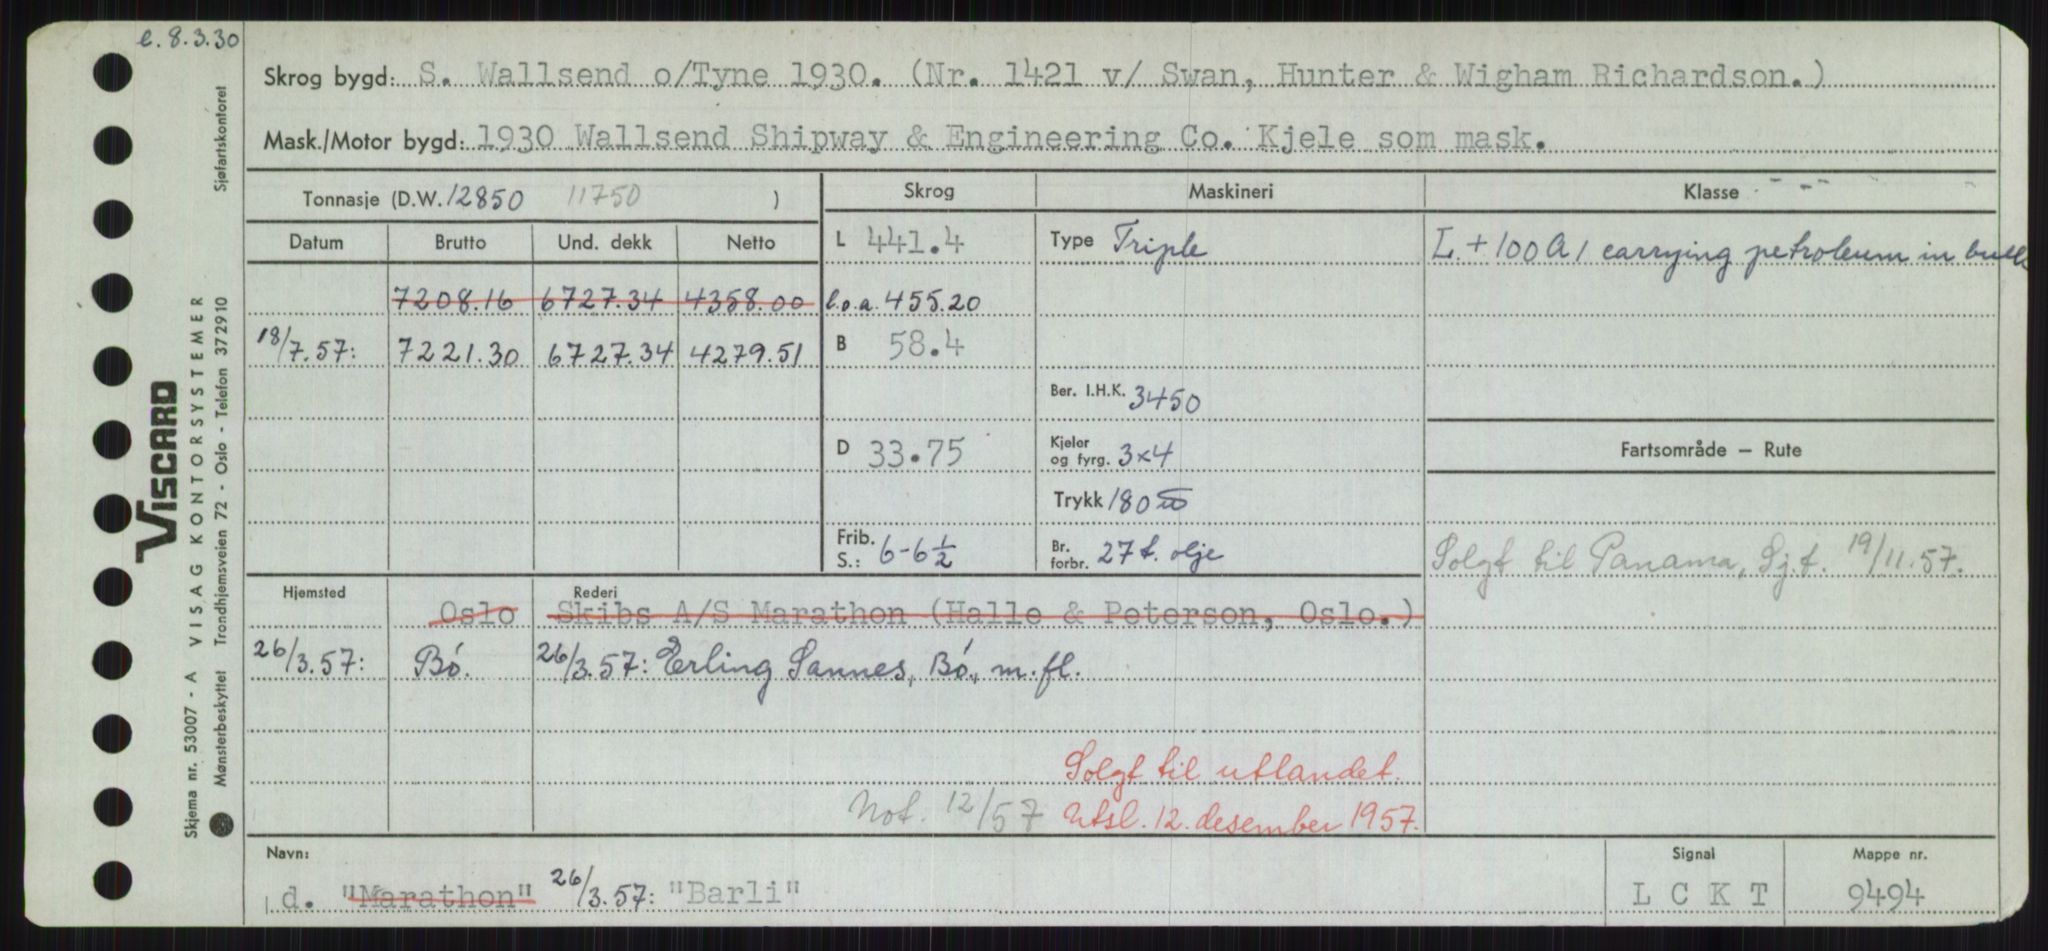 e. 8.3.30
Skrog bygd: S. Wallsend o/Tyne 1930. (Nr. 1421 v/ Swan, Hunter & Wigham Richardson.)
Mask./Motor bygd: 1930 Wallsend Shipway & Engineering Co. Kjele som mask.
Tonnasje (D.W. 12850 11750 )
Skrog
Maskineri
Klasse
Datum Brutto Und. dekk Netto
L 441.4
Type Triple
L + 100 A 1 carrying petroleum in bulk
7208.16 6727.34 4358.00
l.o.a. 455.20
18/7.57: 7221.30 6727.34 4279.51
B 58.4
Ber. I.H.K. 3450
D 33.75
Kjeler og fyrg. 3x4
Fartsområde – Rute
Trykk 180
Frib. S.: 6-6 1/2
Br. forbr. 27 t. olje
Solgt til Panama, Sj.t. 19/11.57.
Hjemsted
Rederi
Oslo Skibs A/S Marathon (Halle & Peterson, Oslo.)
26/3.57: Bó. 26/3.57: Erling Sannes, Bó, m.fl.
Solgt til utlandet.
Not. 12/57 Utsl. 12. desember 1957.
Navn:
Signal
Mappe nr.
d. "Marathon" 26/3.57: "Barli"
L C K T
9494
VISCARD
Skjema nr. 53007 - A VISAG KONTORSYSTEMER
Mønsterbeskyttet Trondhjemsveien 72 - Oslo - Telefon 372910 Sjøfartskontoret